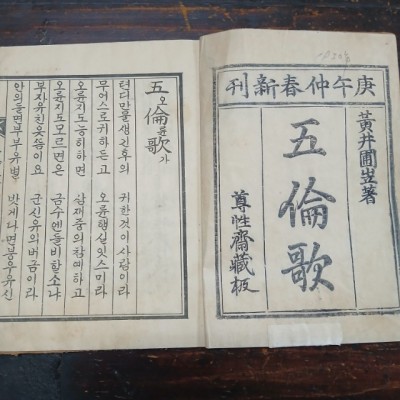 庚午仲春新刊
黃井圃岦著
五倫歌
尊性齋藏板
五오倫륜歌가
텬디만물생긴후의 귀한것이사람이라
무어스로귀하든고 오륜행실잇스미라
오륜지도능히하면 삼재중의참예하고
오륜지도모르면은 금수엔들비할소냐
부자유친웃씀이요 군신유의버금이라
안의들면부부유별 밧게나면붕우유신